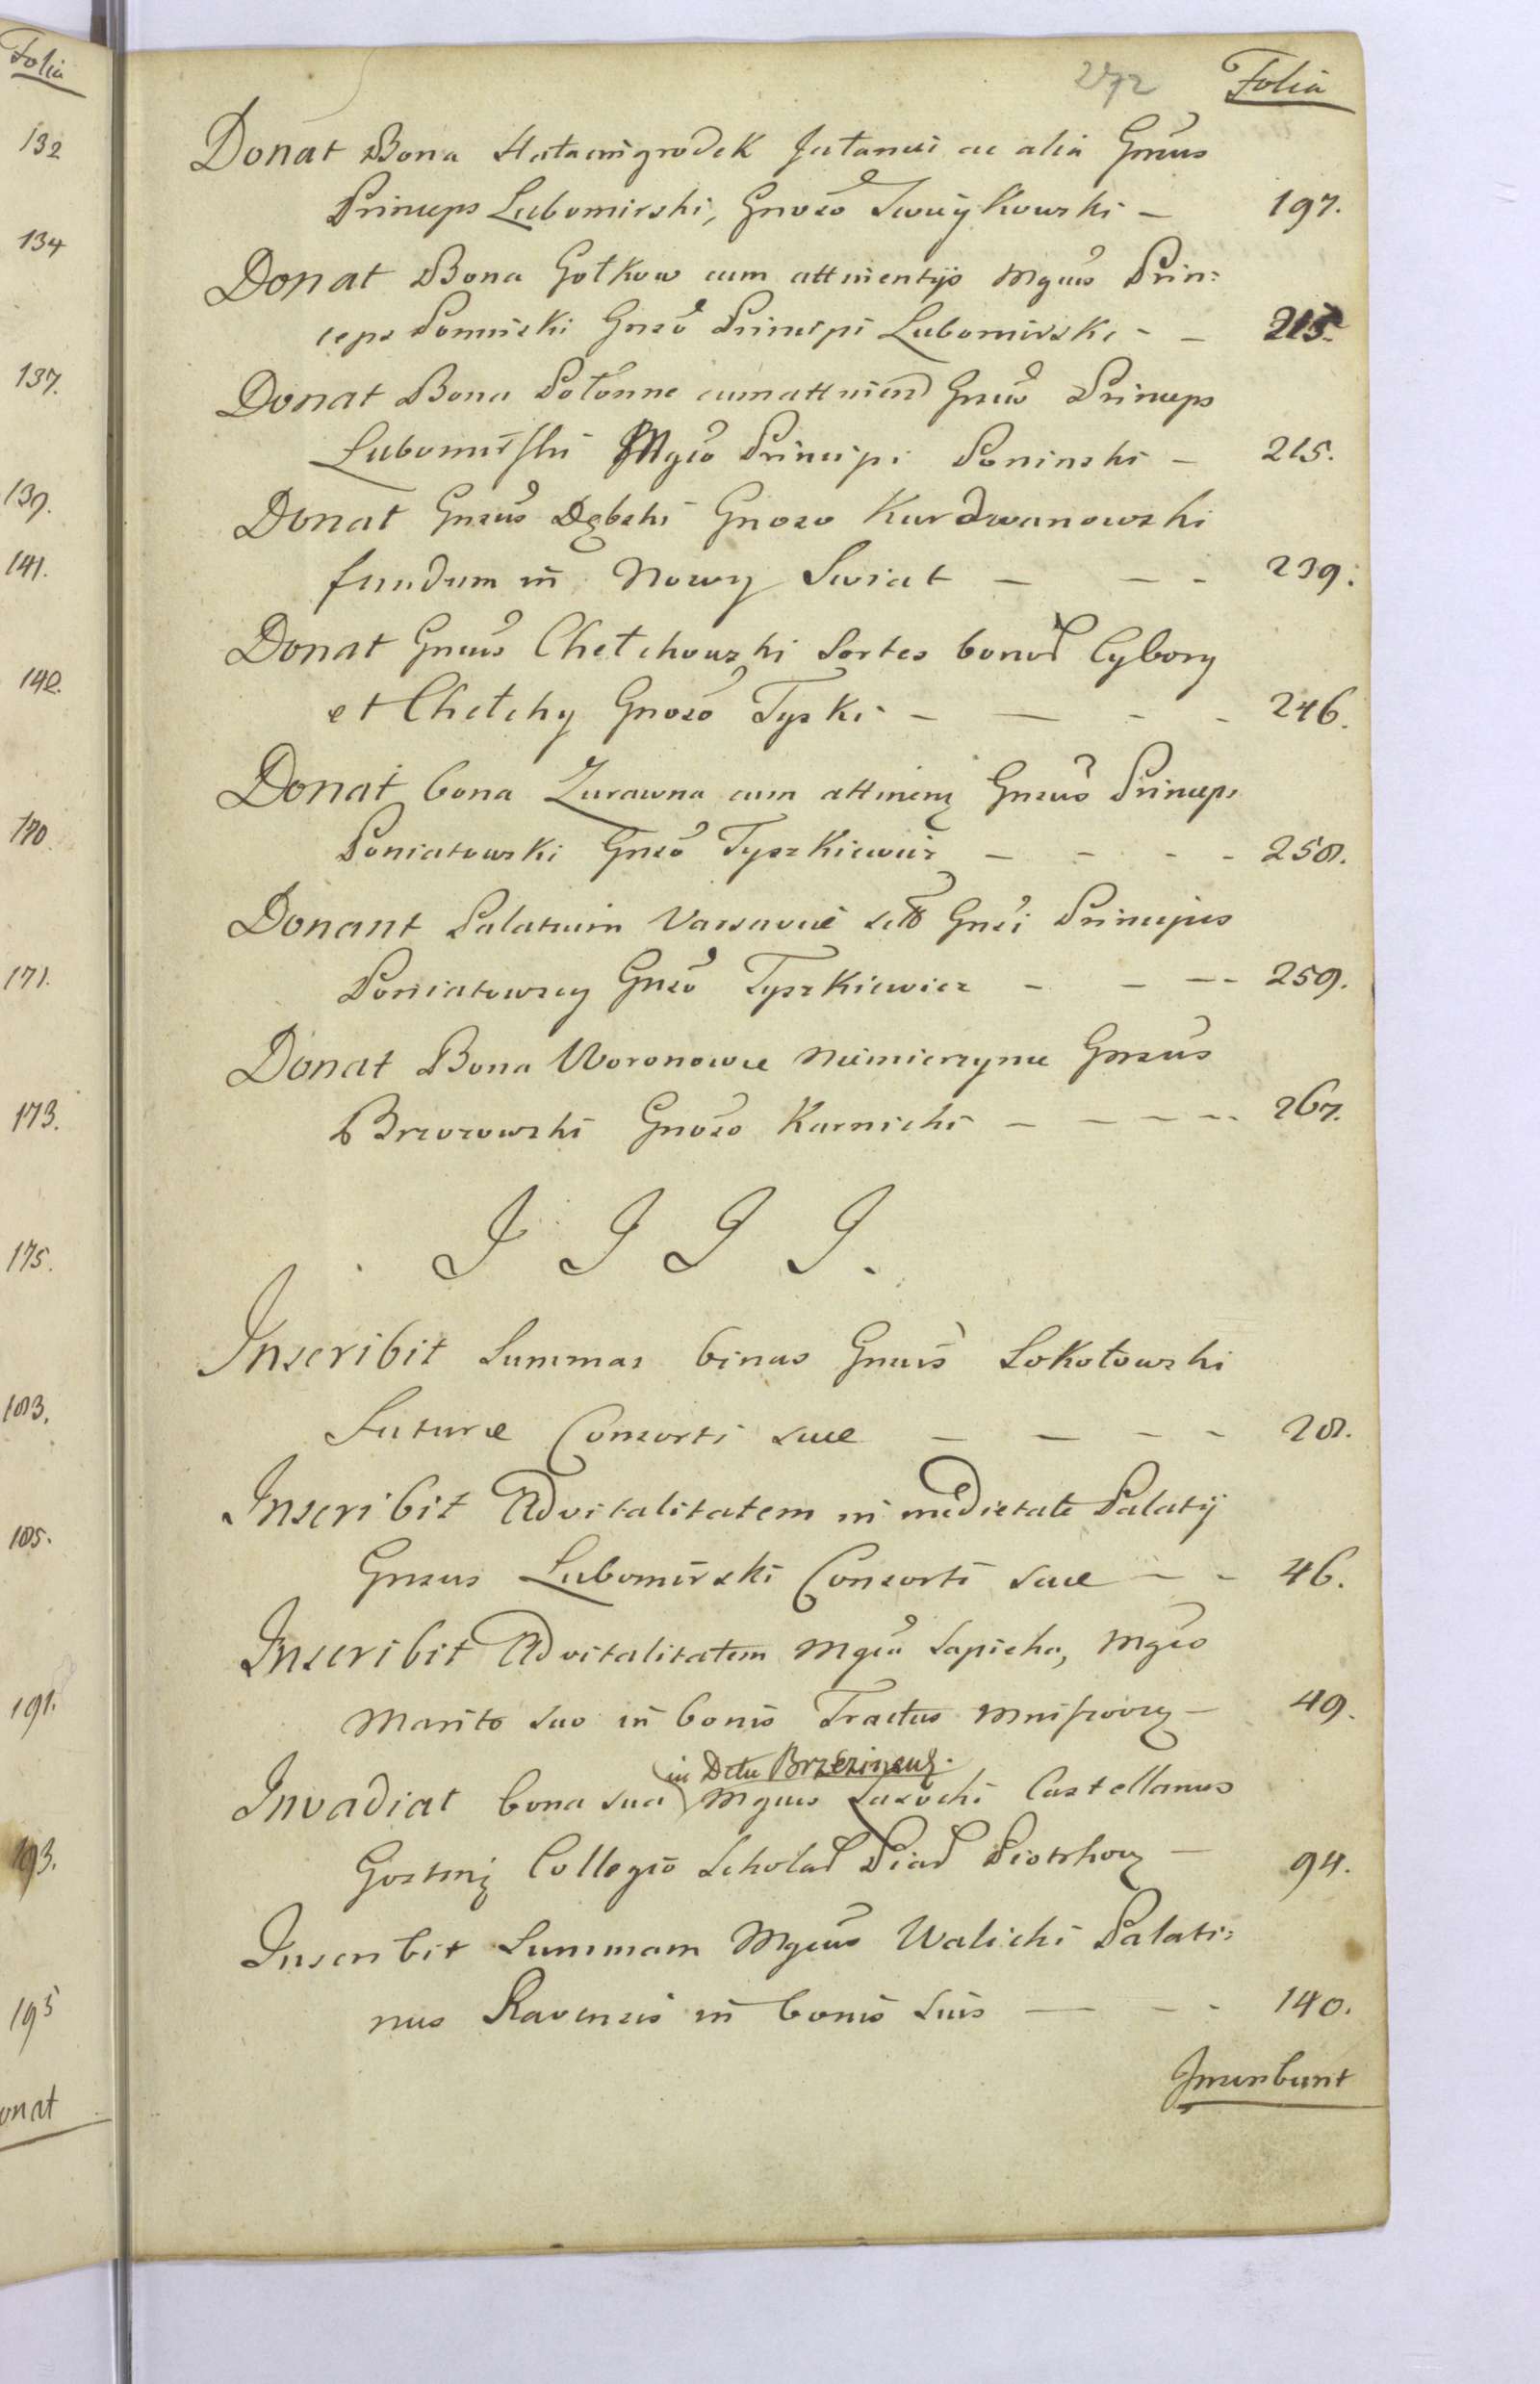 Folia
132
134
137.
139.
141.
142.
170.
171.
173.
175.
183.
185.
191.
193.
195
onat
272 Folia
Donat Bona Hałaimgrodek Jułanui ac alia Gneus
Princeps Lubomirski, Gnoso Swieykowski – 197.
Donat Bona Gołkow cum attinentijs Mgcus Prin=
ceps Poninski Gnso Principi Lubomirski – – 215.
Donat Bona Połonne cum attinen Gnsus Princeps
Lubomirski Mgco Principi Poninski – 215.
Donat Gnsus Dębski Gnoso Kurdwanowski
fundum in Nowy Swiat – – – 239.
Donat Gnsus Chełchowski Sortes bonor Cybory
et Chełchy Gnoso Tyski – – – – 246.
Donat bona Zurawna cum attinen Gnsus Princeps
Poniatowski Gnso Tyszkiewicz – – – – 258.
Donant Palatium Varsaviae Gnsi Principes
Poniatowscy Gnso Tyszkiewicz – – – – 259.
Donat Bona Woronowce Niemierzynce Gnsus
Brzozowski Gnoso Karnicki – – – – 267.
J J J J.
Inscribit Summas binas Gnsus Sokołowski
Futurae Consorti suae – – – – 28.
Inscribit Advitalitatem in medietate Palatij
Gnsus Lubomirski Consorti suae – – 46.
Inscribit Advitalitatem Mgca Sapieha, Mgco
Marito suo in bonis Tractus – 49.
in Dctu Brzezinens.
Invadiat bona sua Mgcus Lasocki Castellanus
Gostinen Collegio Scholar Piar Piotrkov – 94.
Inscribit Summam Mgcus Walicki Palati=
nus Ravensis in bonis suis – – – 140.
Inscribunt